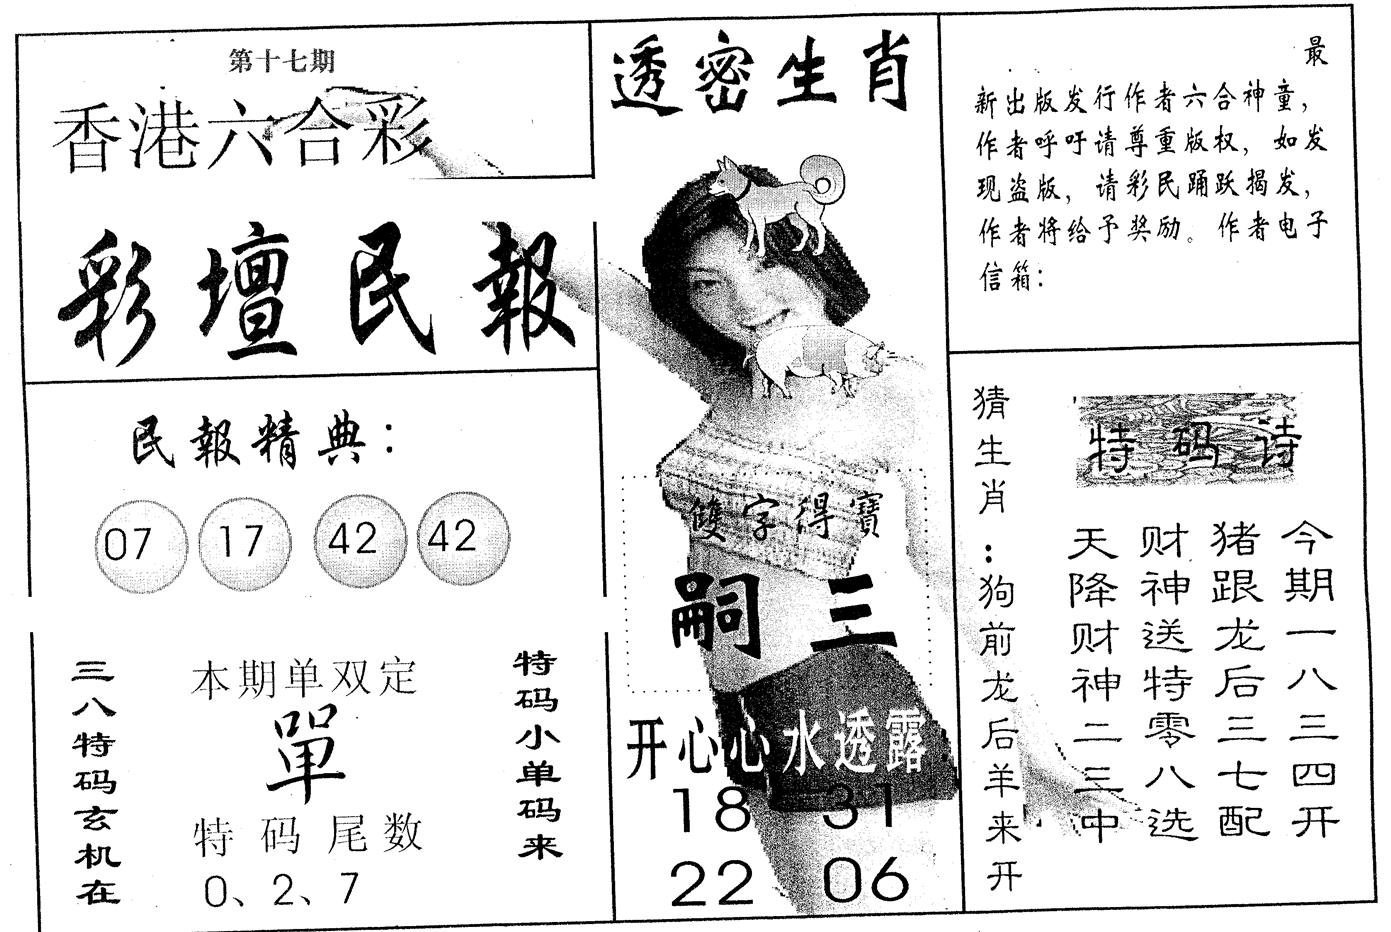 第十七期
香港六合彩
彩壇民報
民報精典：
07 17 42 42
三八特码玄机在
本期单双定
單
特码尾数
0、2、7
特码小单码来
透密生肖
雙字得寶
嗣三
开心心水透露
18 31
22 06
最
新出版发行作者六合神童，
作者呼吁请尊重版权，如发
现盗版，请彩民踊跃揭发，
作者将给予奖励。作者电子
信箱：
猜生肖：狗前龙后羊来开
特码诗
今期一八三四开
猪跟龙后三七配
财神送特零八选
天降财神二三中